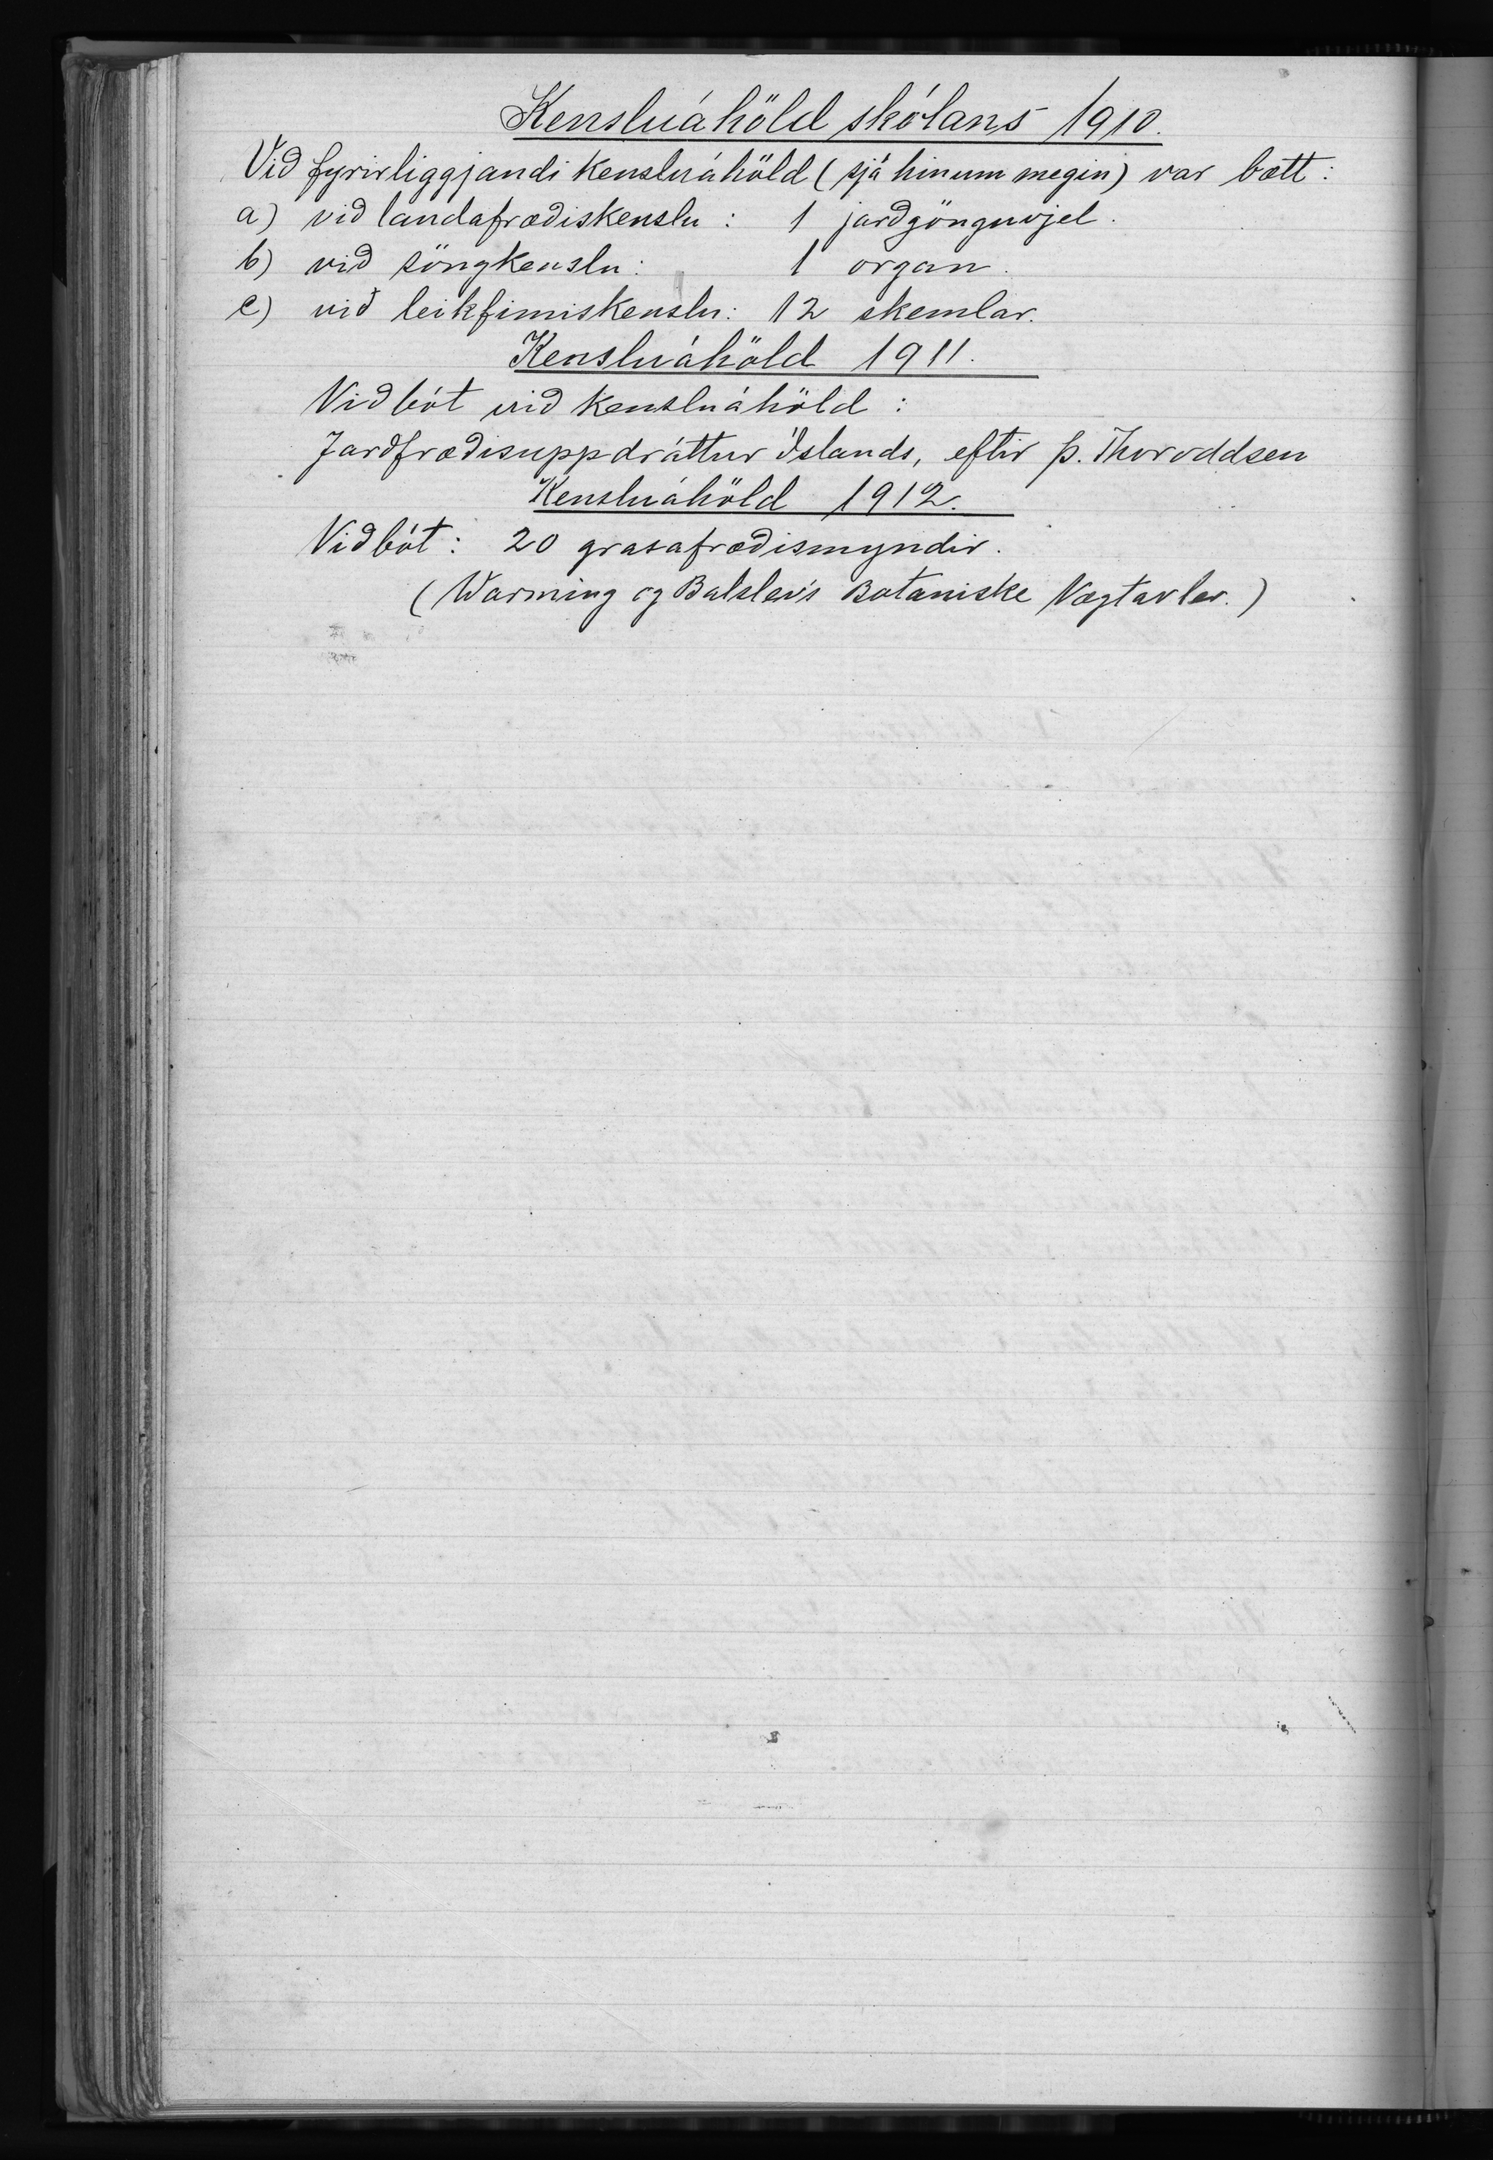 Kensluáhöld skólans 1910.
Við fyrirliggjandi kensluáhöld (sjá hinum megin) var bætt:
a) við landafræðiskenslu: 1 jarðgönguvjel.
b) við söngkenslu: 1 organ.
c) við leikfimiskenslu: 12 skemlar.
Kensluáhöld 1911.
Viðbót við kensluáhöld:
Jarðfræðisuppdráttur Íslands, eftir Þ. Thoroddsen
Kensluáhöld 1912.
Viðbót: 20 grasafræðismyndir.
(Warming og Balslev's Botaniske Vægtavler.)